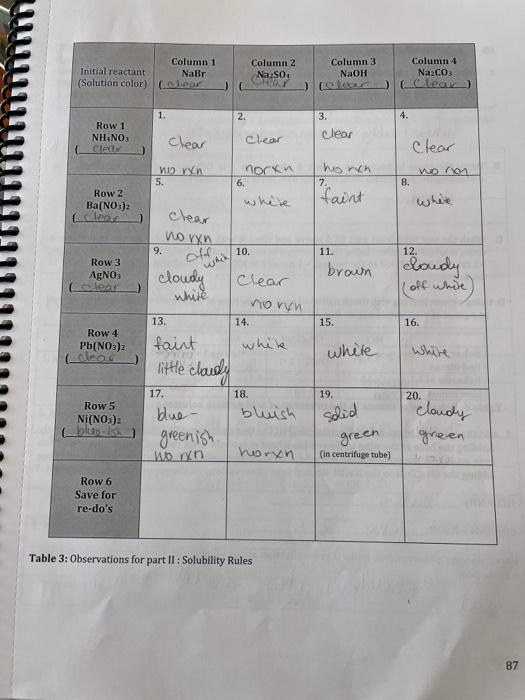 Initial reactant
(Solution color)
Column 1
NaBr
(clear)
Column 2
Na₂SO₄
(clear)
Column 3
NaOH
(clear)
Column 4
Na₂CO₃
(clear)
Row 1
NH₄NO₃
(clear)
1.
clear
no rxn
2.
clear
no rxn
3.
clear
no rxn
4.
clear
no rxn
Row 2
Ba(NO₃)₂
(clear)
5.
clear
no rxn
6.
white
7.
faint
8.
white
Row 3
AgNO₃
(clear)
9.
off white
cloudy
white
10.
clear
no rxn
11.
brown
12.
cloudy
(off white)
Row 4
Pb(NO₃)₂
(clear)
13.
faint
little cloudy
14.
white
15.
white
16.
white
Row 5
Ni(NO₃)₂
(blue-ish)
17.
blue-
greenish
no rxn
18.
bluish
no rxn
19.
solid
green
(in centrifuge tube)
20.
cloudy
green
Row 6
Save for
re-do's
Table 3: Observations for part II : Solubility Rules
87